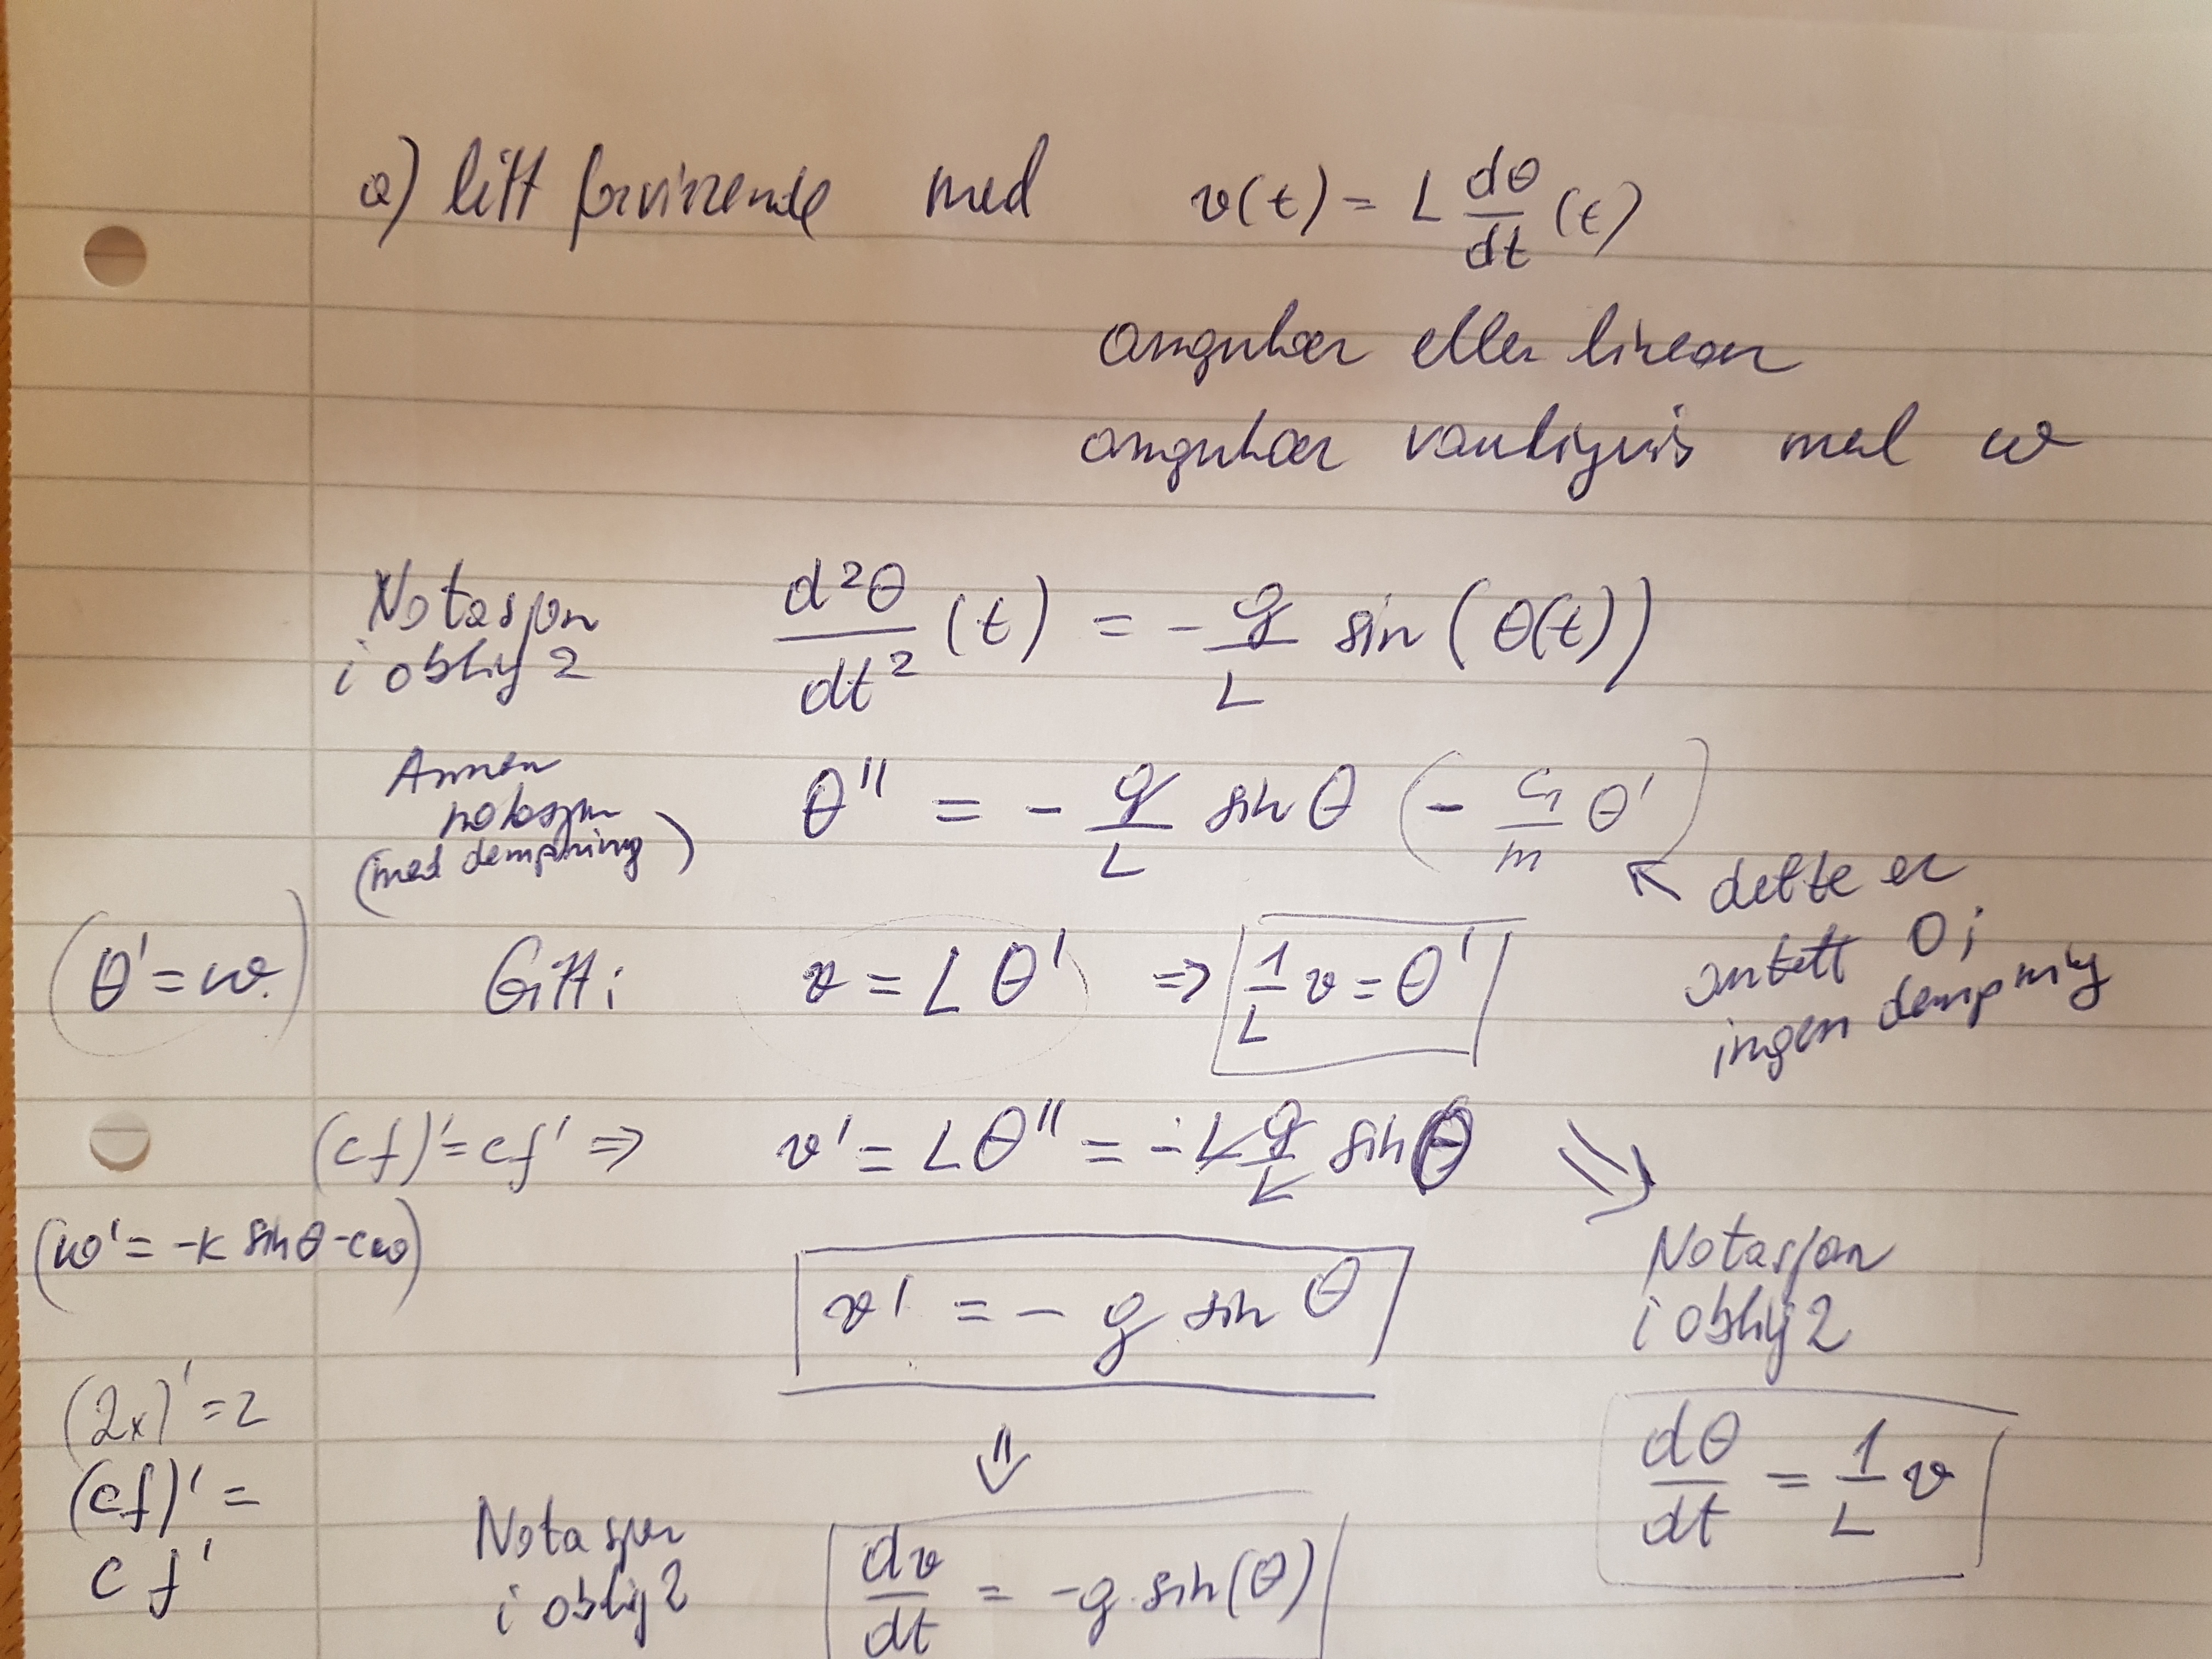 a) litt forvirrende med v(t) = L dθ/dt (t)
angulær eller lineær
angulær vanligvis med ω
Notasjon i oblig 2 d²θ/dt² (t) = - g/L sin(θ(t))
Annen notasjon (med dempning) θ'' = - g/L sin θ (- c/m θ')
↖ dette er antatt 0; ingen dempning
(θ' = ω) Gitt: v = L θ' => 1/L v = θ'
(cf)' = cf' => v' = Lθ'' = -L g/L sin θ =>
(ω' = -k sin θ - cω)
v' = - g sin θ
Notasjon i oblig 2
(2x)' = 2
(cf)' =
c f'
⇓
dθ/dt = 1/L v
Notasjon i oblig 2 dv/dt = -g sin(θ)